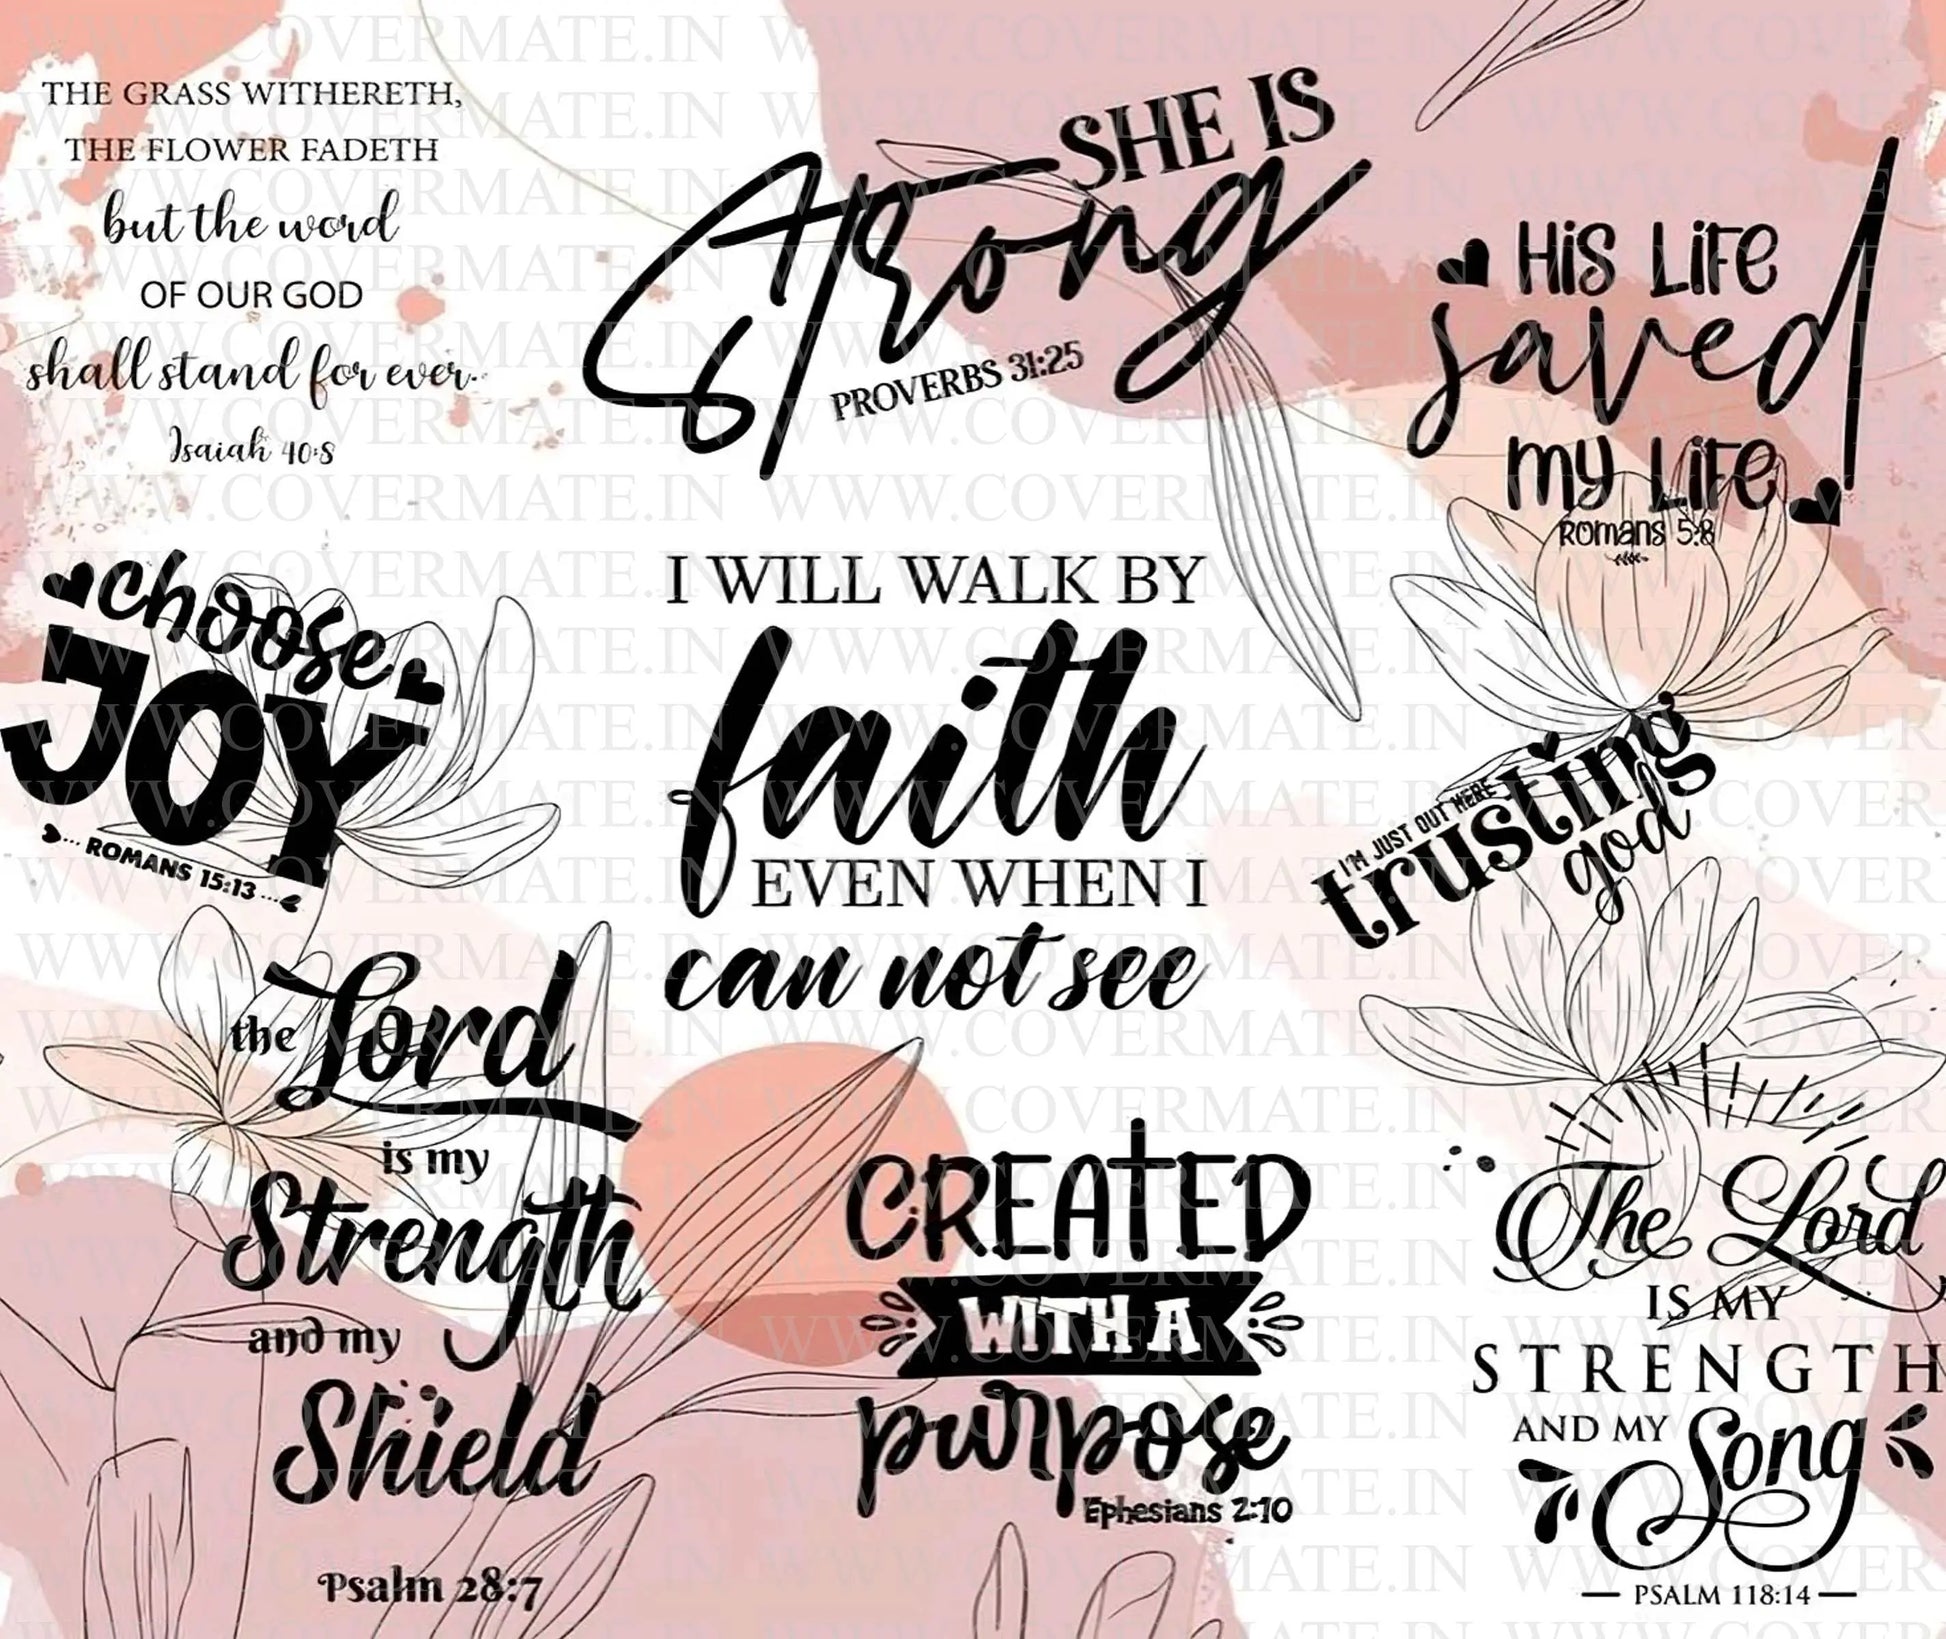 THE GRASS WITHERETH,
THE FLOWER FADETH
but the word
OF OUR GOD
shall stand for ever.
Isaiah 40:8
SHE IS
Strong
PROVERBS 31:25
His Life
saved
my Life
Romans 5:8
choose
JOY
ROMANS 15:13
I WILL WALK BY
faith
EVEN WHEN I
can not see
I'M JUST OUT HERE
trusting
god
the Lord
is my
Strength
and my
Shield
Psalm 28:7
CREATED
WITH A
purpose
Ephesians 2:10
The Lord
IS MY
STRENGTH
AND MY
Song
PSALM 118:14
WWW.COVERMATE.IN